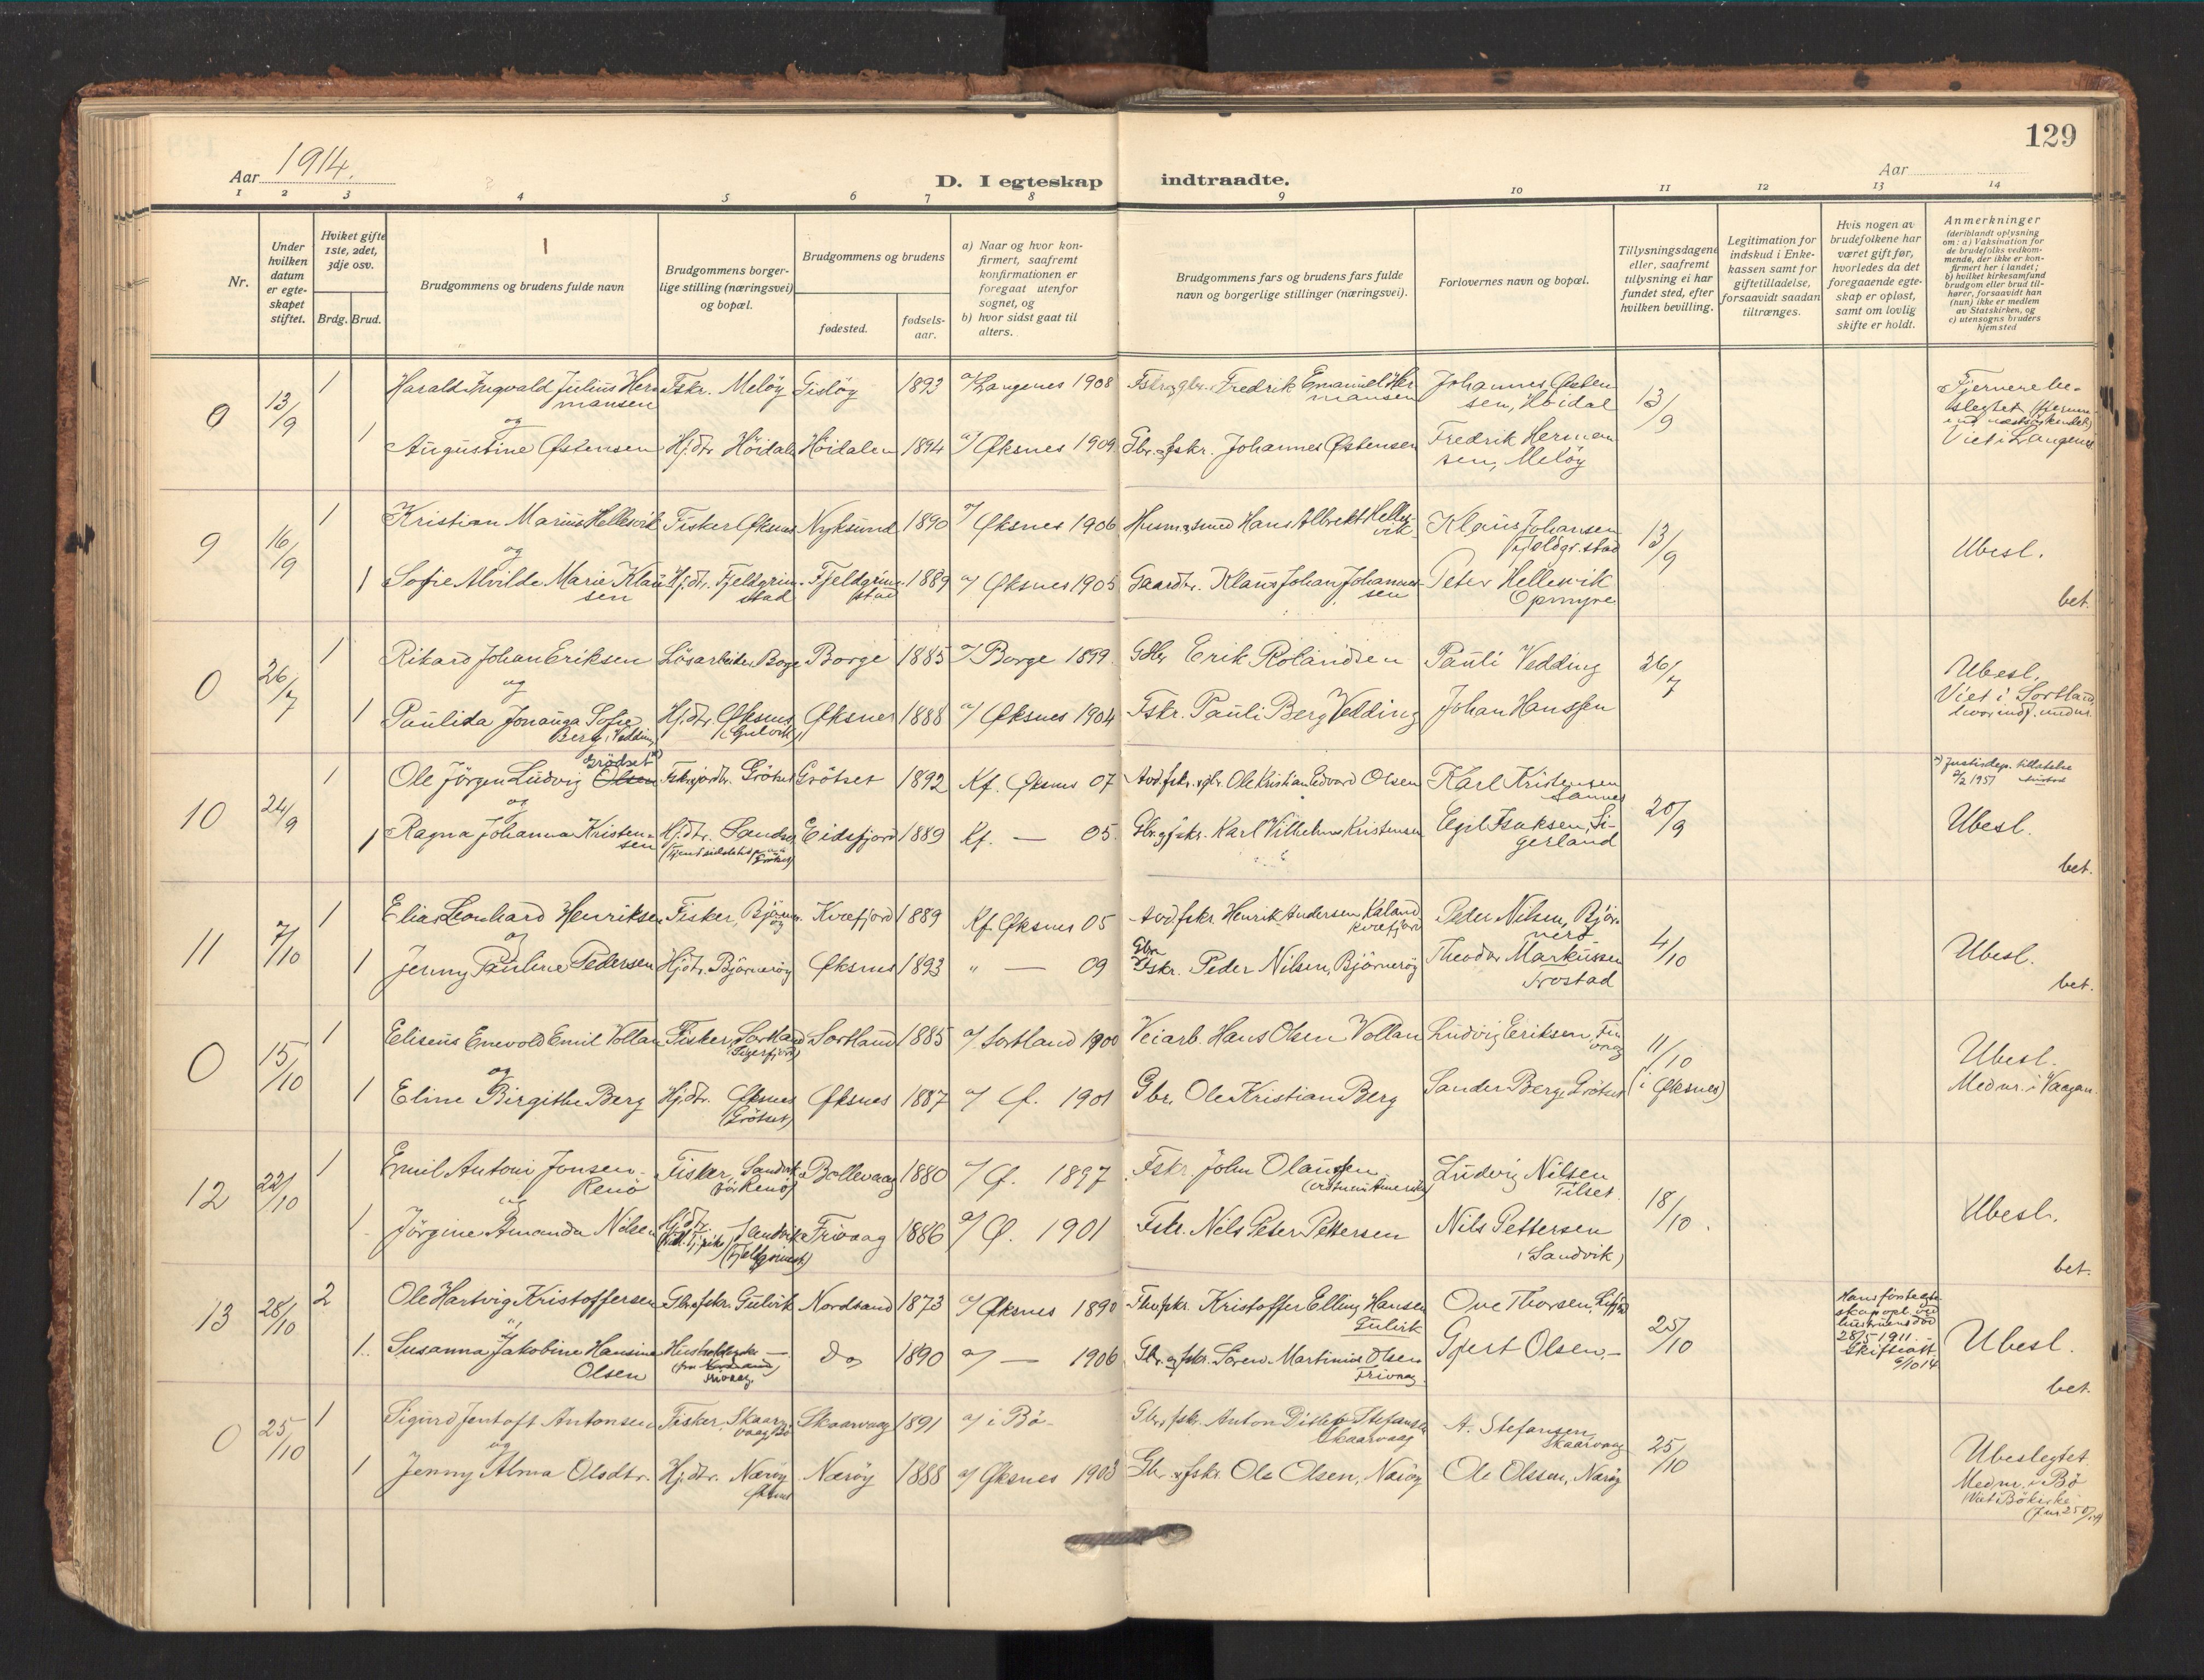 129
Aar 1914.
D. I egteskap indtraadte.
Aar
1 2 3 4 5 6 7 8 9 10 11 12 13 14
Nr.
Under hvilken datum er egteskapet stiftet.
Hviket gifte 1ste, 2det, 3dje osv.
Brdg. Brud.
Brudgommens og brudens fulde navn
Brudgommens borgerlige stilling (næringsvei) og bopæl.
Brudgommens og brudens
fødested.
fødselsaar.
a) Naar og hvor konfirmert, saafremt konfirmationen er foregaat utenfor sognet, og
b) hvor sidst gaat til alters.
Brudgommens fars og brudens fars fulde navn og borgerlige stillinger (næringsvei).
Forlovernes navn og bopæl.
Tillysningsdagene eller, saafremt tillysning ei har fundet sted, efter hvilken bevilling.
Legitimation for indskud i Enkekassen samt for giftetilladelse, forsaavidt saadan tiltrænges.
Hvis nogen av brudefolkene har været gift før, hvorledes da det foregaaende egteskap er opløst, samt om lovlig skifte er holdt.
Anmerkninger (deriblandt oplysning om: a) Vaksination for de brudefolks vedkommende, der ikke er konfirmert her i landet; b) hvilket kirkesamfund brudgom eller brud tilhører, forsaavidt han (hun) ikke er medlem av Statskirken, og c) utensogns bruders hjemsted
0 13/9 1 Harald Ingvald Julius Hermansen Fskr. Meløy Tisløy 1893 a/ Langenes 1908 Fskr. og gbr. Fredrik Emanuel Hermansen Johannes Østensen, Høidal 13/9 Fjernere beslegtet
og
1 Augustine Østensen Hj.dtr. Høidal Høidalen 1894 a/ Øksnes 1909 Gbr. og fskr. Johannes Østensen Fredrik Hermansen, Meløy Viet i Langenes
9 16/9 1 Kristian Marius Hellesvik Fisker Øksnes Nyksund 1890 a/ Øksnes 1906 Husm. og smed Hans Albrekt Hellesvik Klaus Johansen Fjeldgr.stad 13/9 Ubesl.
og
1 Sofie Alvilde Marie Klausen Hj.dtr. Fjeldgrimstad Fjeldgrimstad 1889 a/ Øksnes 1905 Gaardbr. Klaus Johan Johannessen Peter Hellesvik Opmyre bet.
0 26/7 1 Rikard Johan Eriksen Løsarbeider Borge Borge 1885 a/ Borge 1899. Gbr. Erik Rolandsen Pauli Vedding 26/7 Ubesl.
og
1 Paulida Jonanga Sofie Berg, Vedding Hj.dtr. Øksnes (Gulvik) Øksnes 1888 a/ Øksnes 1904 Fskr. Pauli Berg Vedding Johan Hanssen Viet i Sortland, hvor indf. under nr.
10 24/9 1 Ole Jørgen Ludvig Olsen Grödset Fskr. jordbr. Grötset Grötset 1892 Kf. Øksnes 07 Avd. fskr. og gbr. Ole Kristian Edvard Olsen Karl Kristensen Sannes 20/9 Justisdep. tillatelse 2/2 1951
og
1 Ragna Johanna Kristensen Hj.dtr. Sandnes Eidsfjord 1889 Kf. — 05. Gbr. og fskr. Karl Vilhelm Kristensen Egil Isaksen, Sigerland Ubesl. bet.
11 7/10 1 Elias Leonhard Henriksen Fisker, Björnerøy Kvæfjord 1889 Kf. Øksnes 05 Avd. fskr. Henrik Andersen Kaland Kvæfjord Peder Nilsen, Björnerö 4/10 Ubesl.
og
1 Jenny Pauline Pedersen Hjdtr. Björnerøy Øksnes 1893 " — 09 Gbr. Fskr. Peder Nilsen, Björnerøy Theodor Markussen Frostad bet.
0 15/10 1 Eliseus Enevold Emil Vollan Fisker, Sortland (Sigerfjord) Sortland 1885 a/ Sortland 1900 Veiarb. Hans Olsen Vollan Ludvig Eriksen, Finvaag 11/10 (i Øksnes) Ubesl.
og
1 Eline Birgithe Berg Hj.dtr. Øksnes (Grötset) Øksnes 1887 a/ Ø. 1901 Gbr. Ole Kristian Berg Sander Berg, Grötset Med nr. i Vaagan.
12 22/10 1 Emil Antoni Jonsen Renö Fisker, Sandvik för Renö) Bollevaag 1880 a/ Ø. 1897 Fskr. John Olaussen Ludvig Nilsen Tilset. 18/10. Ubesl.
og
1 Jörgine Amanda Nilsen Hjdtr. Sandvik (Fjeldgrimst.) Frivaag 1886 a/ Ø. 1901 Fskr. Nils Peter Pettersen Nils Pettersen (Sandvik) bet.
13 28/10 2 Ole Hartvig Kristoffersen Gbr. og fskr. Gulvik Nordsand 1873 a/ Øksnes 1890 Gbr. og fskr. Kristoffer Elling Hansen Gulvik Ove Thorsen, 25/10 Hans første egteskap opl. ved hustruens død 28/5 1911. Skifteatt. 6/10 14 Ubesl.
1. Susanna Jakobine Hansine Olsen Husholderske — Frivaag. do 1890 a/ — 1906 Gbr. og fskr. Søren Martinius Olsen Frivaag Gjert Olsen. — bet.
0 25/10 1 Sigurd Jentoft Antonsen Fisker Skaarvaag Bö Skaarvaag 1891 a/ i Bö Gbr. fskr. Anton Ditlev Stefansen Skaarvaag A. Stefansen Skaarvaag 25/10 Ubeslegtet
og
1 Jenny Alma Olsdtr. Hj.dtr. Nærøy Øksnes Nærøy 1888 a/ Øksnes 1903 Gbr. og fskr. Ole Olsen, Nærøy Ole Olssen, Nærøy Med nr. i Bö (Viet i Bö kirke